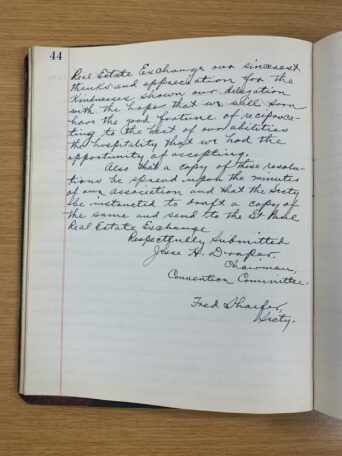 44
Real Estate Exchange our sincerest
thanks and appreciation for the
kindnesses shown our delegation
with the hopes that we will soon
have the good fortune of reciproca-
ting to the best of our abilities
the hospitality that we had the
opportunity of accepting.
Also that a copy of these resolu-
tions be spread upon the minutes
of our association and that the Secty
be instructed to draft a copy of
the same and send to the St Paul
Real Estate Exchange
Respectfully Submitted
Jesse H. Draper.
Chairman,
Convention Committee.
Fred Shaefer,
Secty.